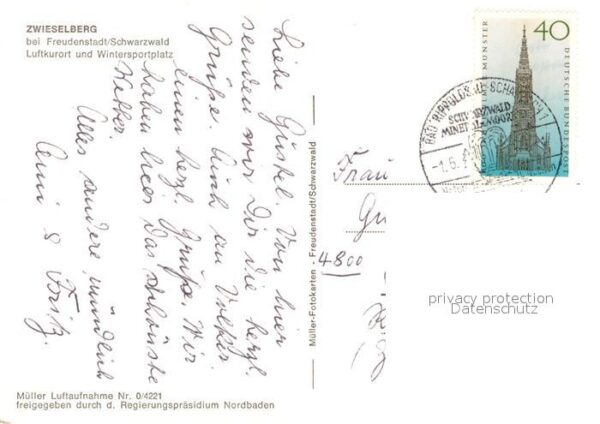 ZWIESELBERG
bei Freudenstadt/Schwarzwald
Luftkurort und Wintersportplatz
Liebe Gustel. Von hier
senden wir Dir die herzl.
Grüße. Auch an Volker
einen herzl. Gruß. Wir
haben hier das schönste
Wetter.
Alles andere mündlich
Anni & Fritz.
Müller Luftaufnahme Nr. 0/4221
freigegeben durch d. Regierungspräsidium Nordbaden
Müller-Fotokarten - Freudenstadt/Schwarzwald
40
ULMER MÜNSTER
DEUTSCHE BUNDESPOST
BAD RIPPOLDSAU-SCHAPBACH 1
SCHWARZWALD
-1.6.
Frau
Gu
4800
privacy protection
Datenschutz